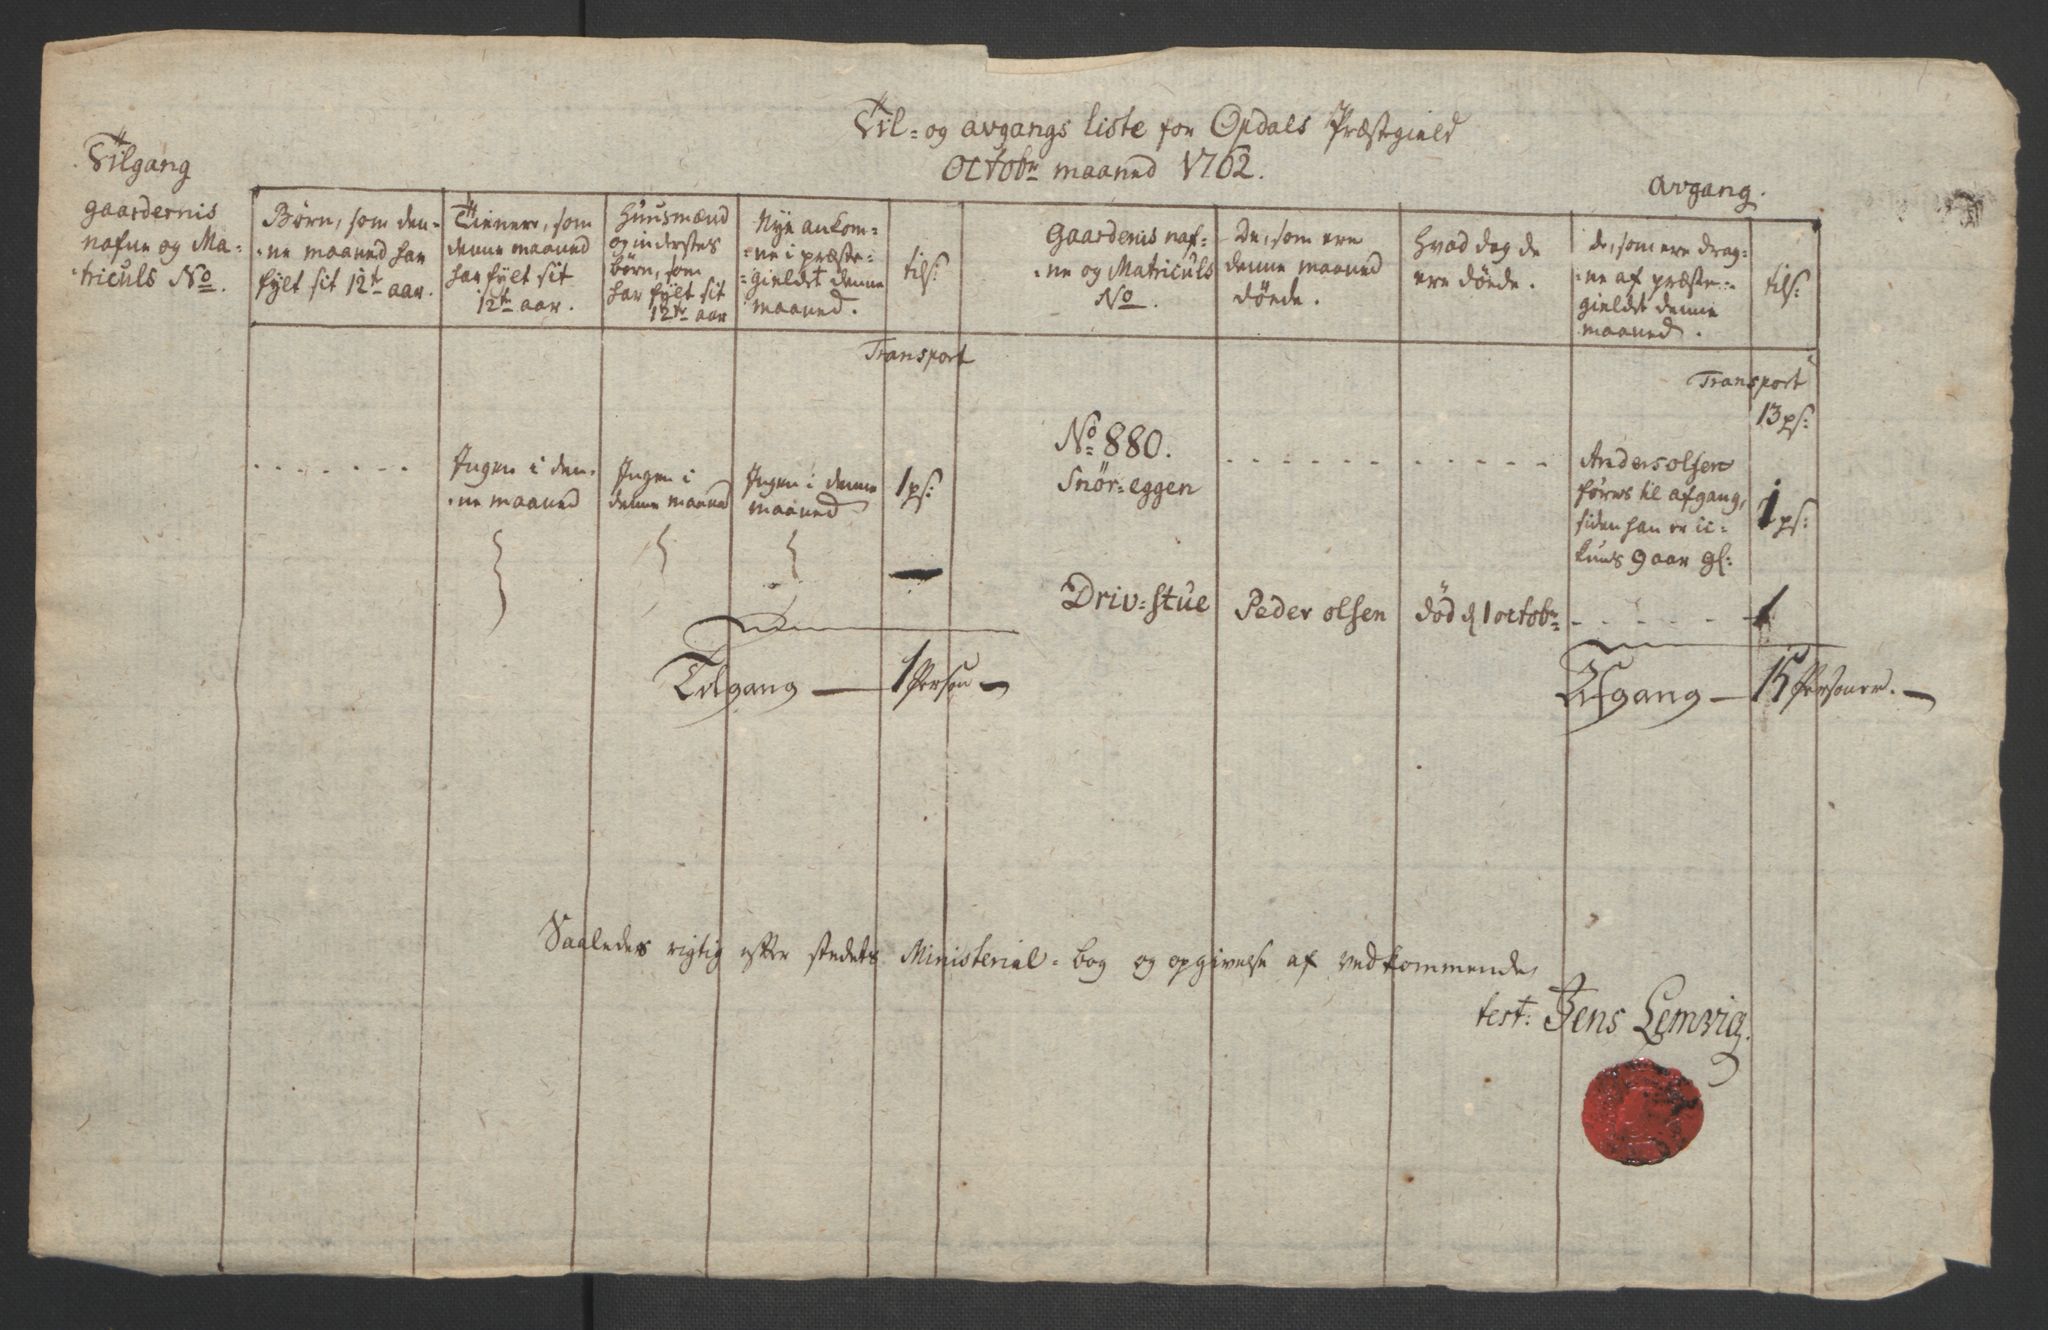 Til- og avgangs liste for Opdals Præstegield
Octobr maaned 1762.
Tilgang
avgang.
gaardernis
nafne og Ma-
triculs No.
Børn, som den-
-ne maaned har
fylt sit 12te aar.
Tienere, som
denne maaned
har fylt sit
12te aar.
Huusmænd
og inderstes
børn, som
har fylt sit
12te aar
Nye ankom-
-ne i præste-
-gieldet denne
maaned.
tils:
gaardenis naf-
-ne og Matriculs
No.
De, som ere
denne maaned
døede.
Hvad dag de
ere døede.
de, som ere drag-
-ne af præste-
gieldet denne
maaned.
tils:
Transport
Transport
13 ps:
- - - - - - -
Ingen i den-
-ne maaned
Ingen i
denne maaned
Ingen i denne
maaned
1 ps:
No 880.
Snör-eggen
- - - - - - - - - - -
Anders olsen
føres til afgang,
siden han er ic-
kuns 9 aar gl:
1 ps:
Driv-stue Peder olsen død d 1 octobr - - - - - - 1
Tilgang — 1 Person —
Afgang — 15 Personer. —
Saaledes rigtig efter stedets Ministerial-bog og opgivelse af vedkommende,
test: Jens Lemvig.